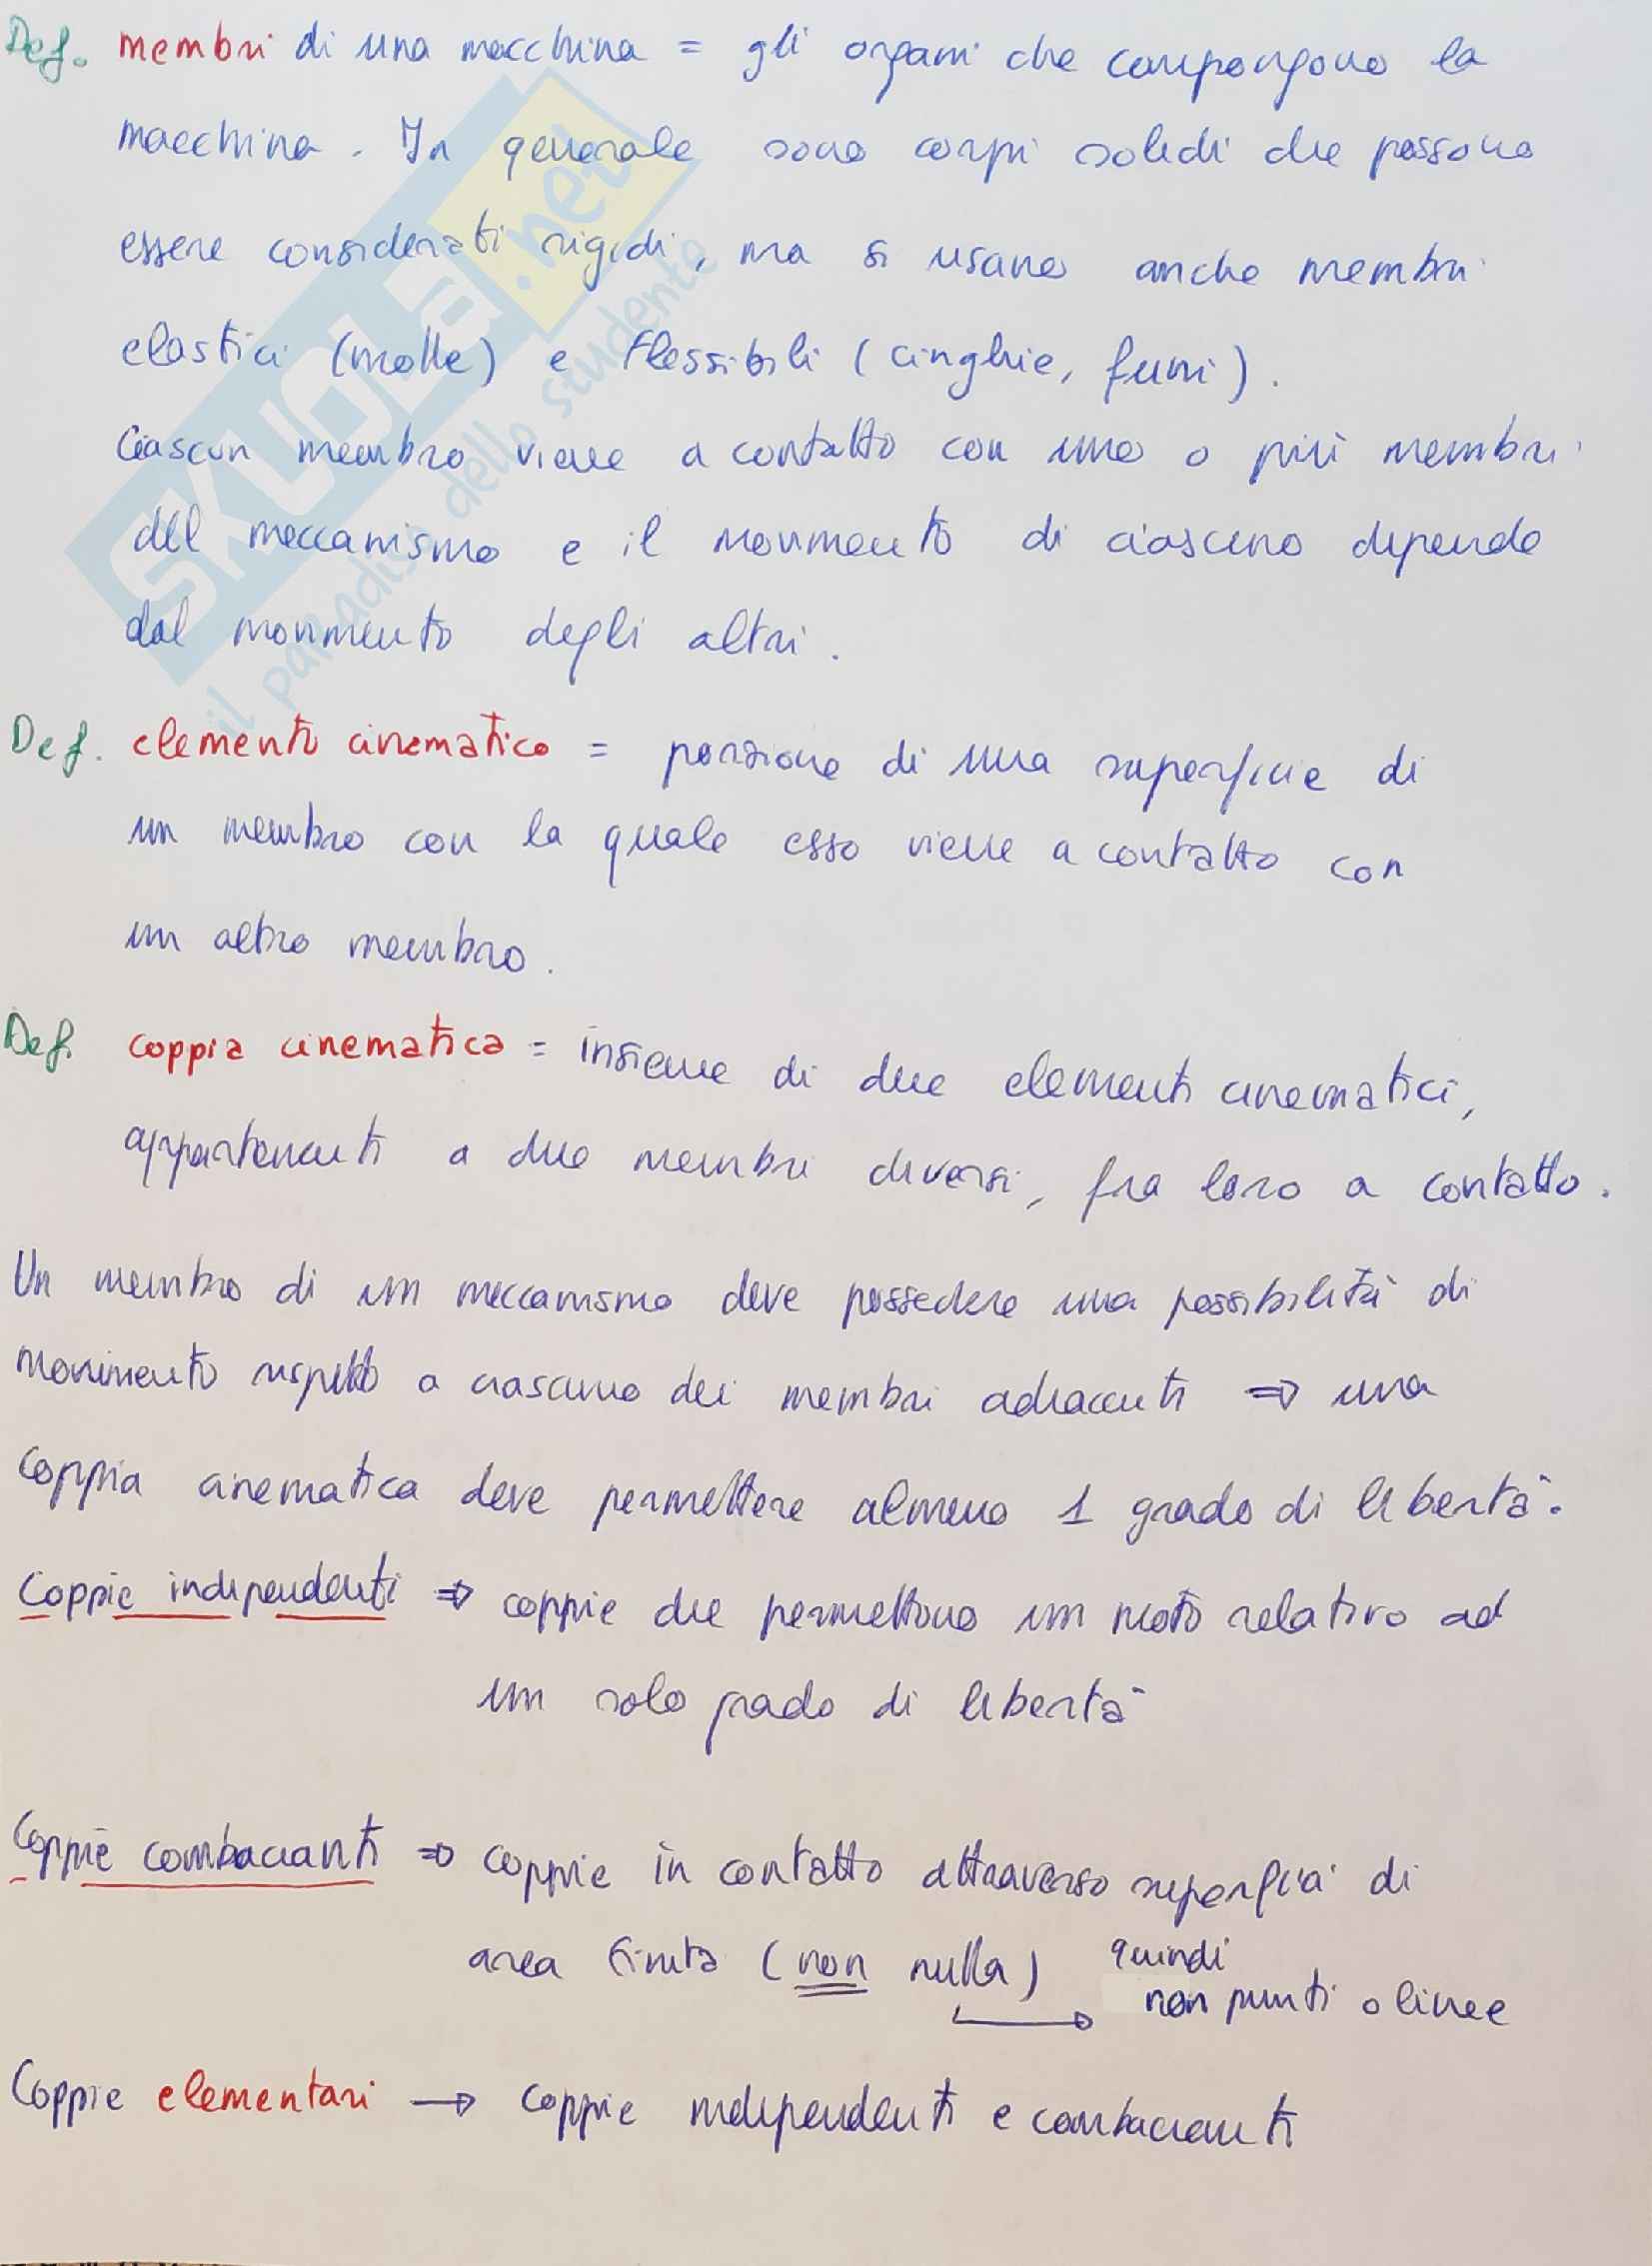 Def. membri di una macchina = gli organi che compongono la
macchina. In generale sono corpi solidi che possono
essere considerati rigidi, ma si usano anche membri
elastici (molle) e flessibili (cinghie, funi).
Ciascun membro viene a contatto con uno o più membri
del meccanismo e il movimento di ciascuno dipende
dal movimento degli altri.
Def. elemento cinematico = porzione di una superficie di
un membro con la quale esso viene a contatto con
un altro membro.
Def. coppia cinematica = insieme di due elementi cinematici,
appartenenti a due membri diversi, fra loro a contatto.
Un membro di un meccanismo deve possedere una possibilità di
movimento rispetto a ciascuno dei membri adiacenti ⇒ una
coppia cinematica deve permettere almeno 1 grado di libertà.
Coppie indipendenti ⇒ coppie che permettono un moto relativo ad
un solo grado di libertà
Coppie combacianti ⇒ coppie in contatto attraverso superfici di
area finita (non nulla) quindi
non punti o linee
Coppie elementari → coppie indipendenti e combacianti
SKUOLA.net
il paradiso dello studente